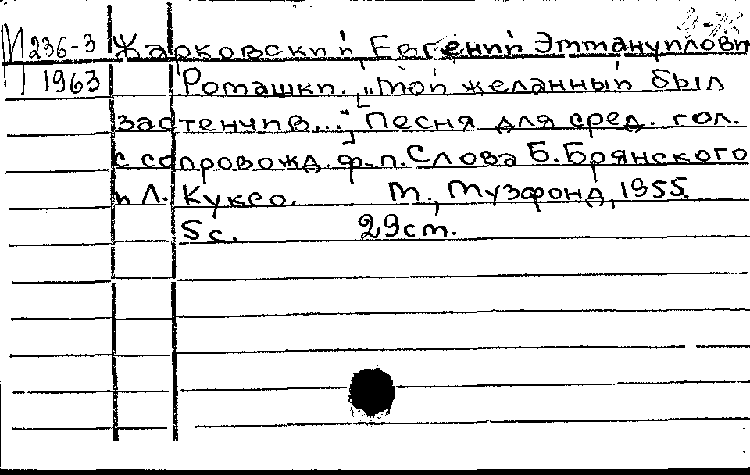 М 236-3 Жарковский, Евгений Эммануилович
1963 Ромашки. "Мой желанный был
застенчив..." Песня для сред. гол.
с сопровожд. ф.п. Слова Б. Брянского
и Л. Куксо. М., Музфонд, 1955.
5с. 29см.